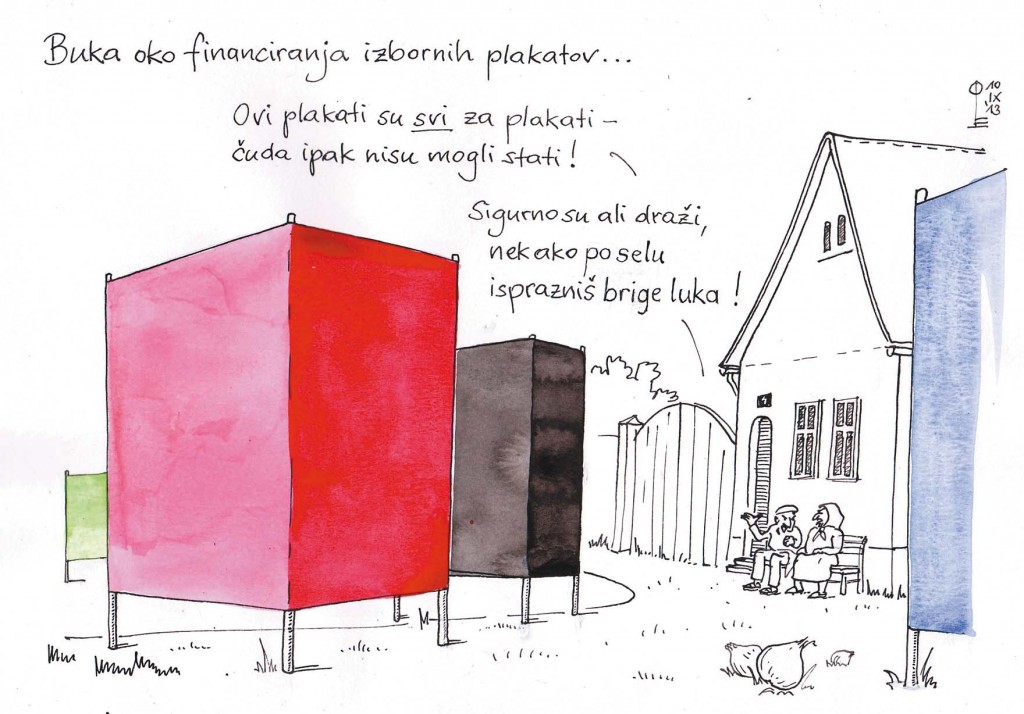 Buka oko financiranja izbornih plakatov...
10
IX
13
Ovi plakati su svi za plakati -
čuda ipak nisu mogli stati!
Sigurno su ali draži,
nekako po selu
isprazniš brige luka!